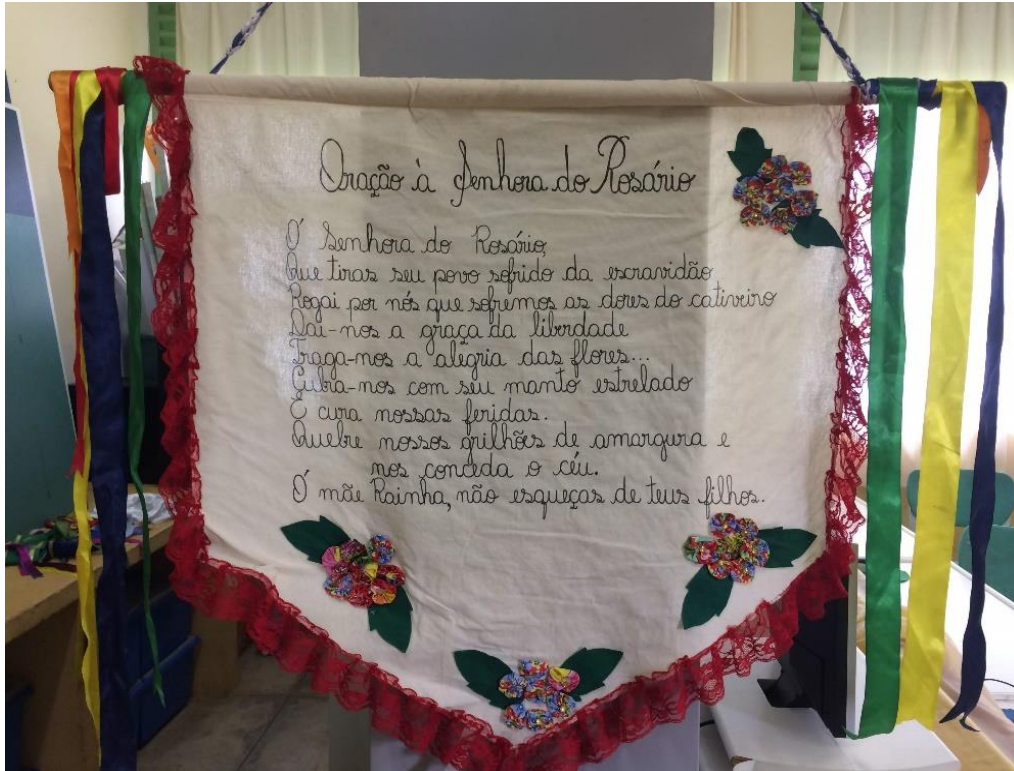 Oração à Senhora do Rosário
Ó Senhora do Rosário,
Que tiras seu povo sofrido da escravidão
Rogai por nós que sofremos as dores do cativeiro
Dai-nos a graça da liberdade
Traga-nos a alegria das flores...
Cubra-nos com seu manto estrelado
E cura nossas feridas.
Quebre nossos grilhões de amargura e
nos conceda o céu.
Ó mãe Rainha, não esqueças de teus filhos.